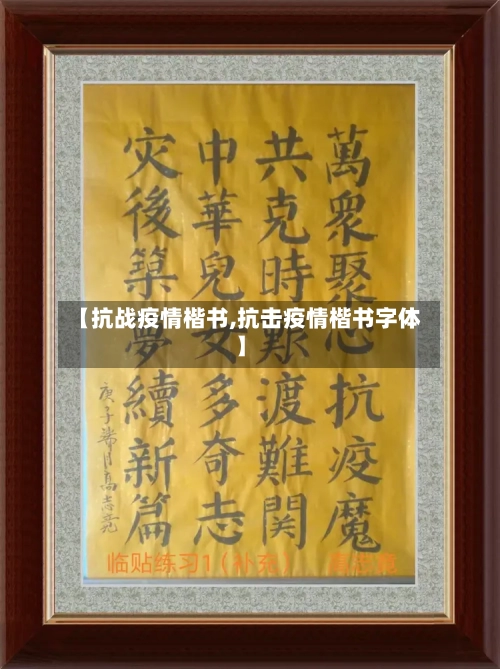 萬衆聚心抗疫魔
共克時艱渡難関
中華兒女多奇志
灾後築夢續新篇
庚子
月高志
【抗战疫情楷书,抗击疫情楷书字体
】
临贴练习1（补充）